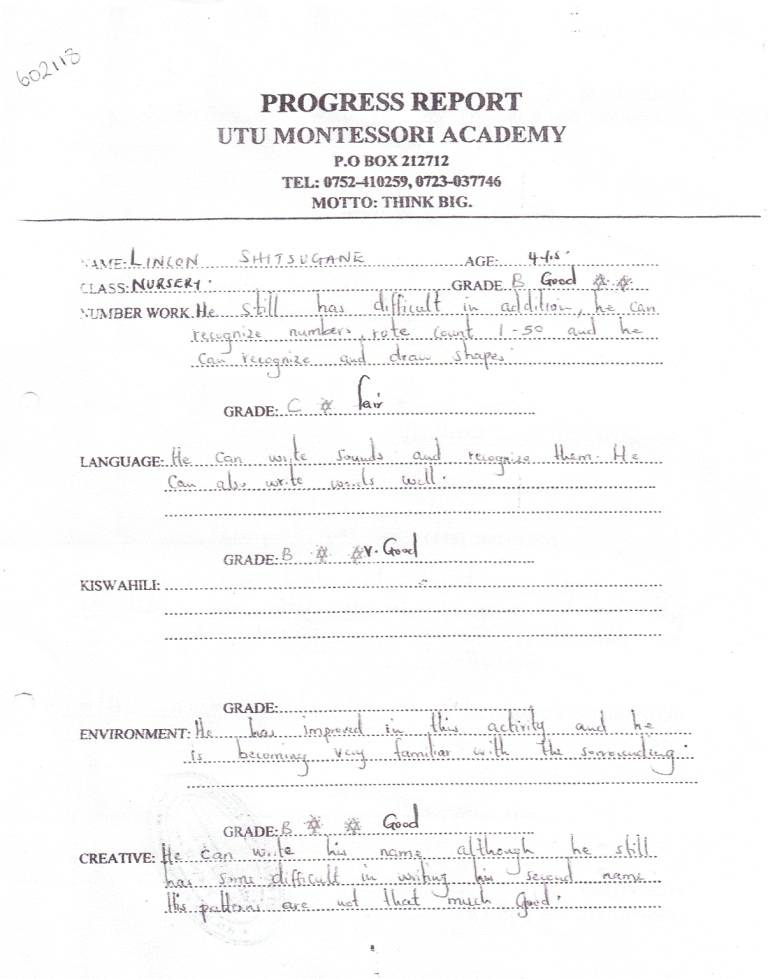 602118
PROGRESS REPORT
UTU MONTESSORI ACADEMY
P.O BOX 212712
TEL: 0752-410259, 0723-037746
MOTTO: THINK BIG.
NAME: LINCON SHITSUGANE AGE: 4 yrs.
CLASS: NURSERY. GRADE. B Good
NUMBER WORK. He still has difficult in addition, he can
recognize numbers, rote count 1-50 and he
can recognize and draw shapes.
GRADE: C fair
LANGUAGE: He can write sounds and recognise them. He
can also write words well.
GRADE: B V. Good
KISWAHILI:
GRADE:
ENVIRONMENT: He has improved in this activity and he
is becoming very familiar with the surrounding.
GRADE: B Good
CREATIVE: He can write his name although he still
has some difficult in writing his second name
His patterns are not that much Good.